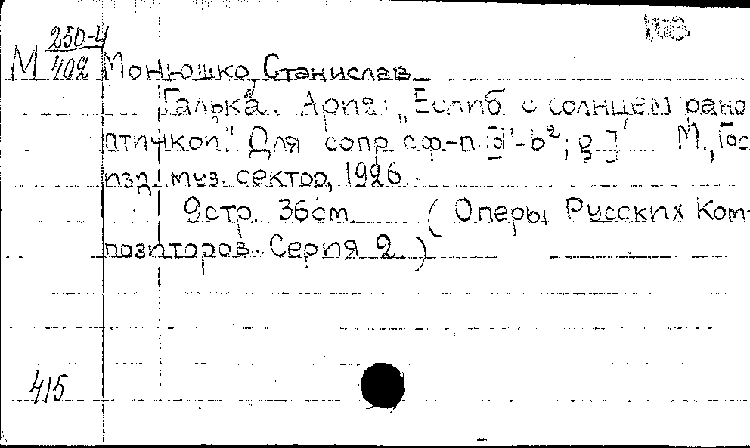 250-4
М 402 Монюшко, Станислав
Галька. Ария: „Еслиб с солнцем рано
птичкой." Для сопр. с ф-п. [d¹-b²; g] М., Гос.
изд. муз. сектор, 1926.
9 стр. 36 см. (Оперы Русских Ком-
позиторов. Серия 2.)
415